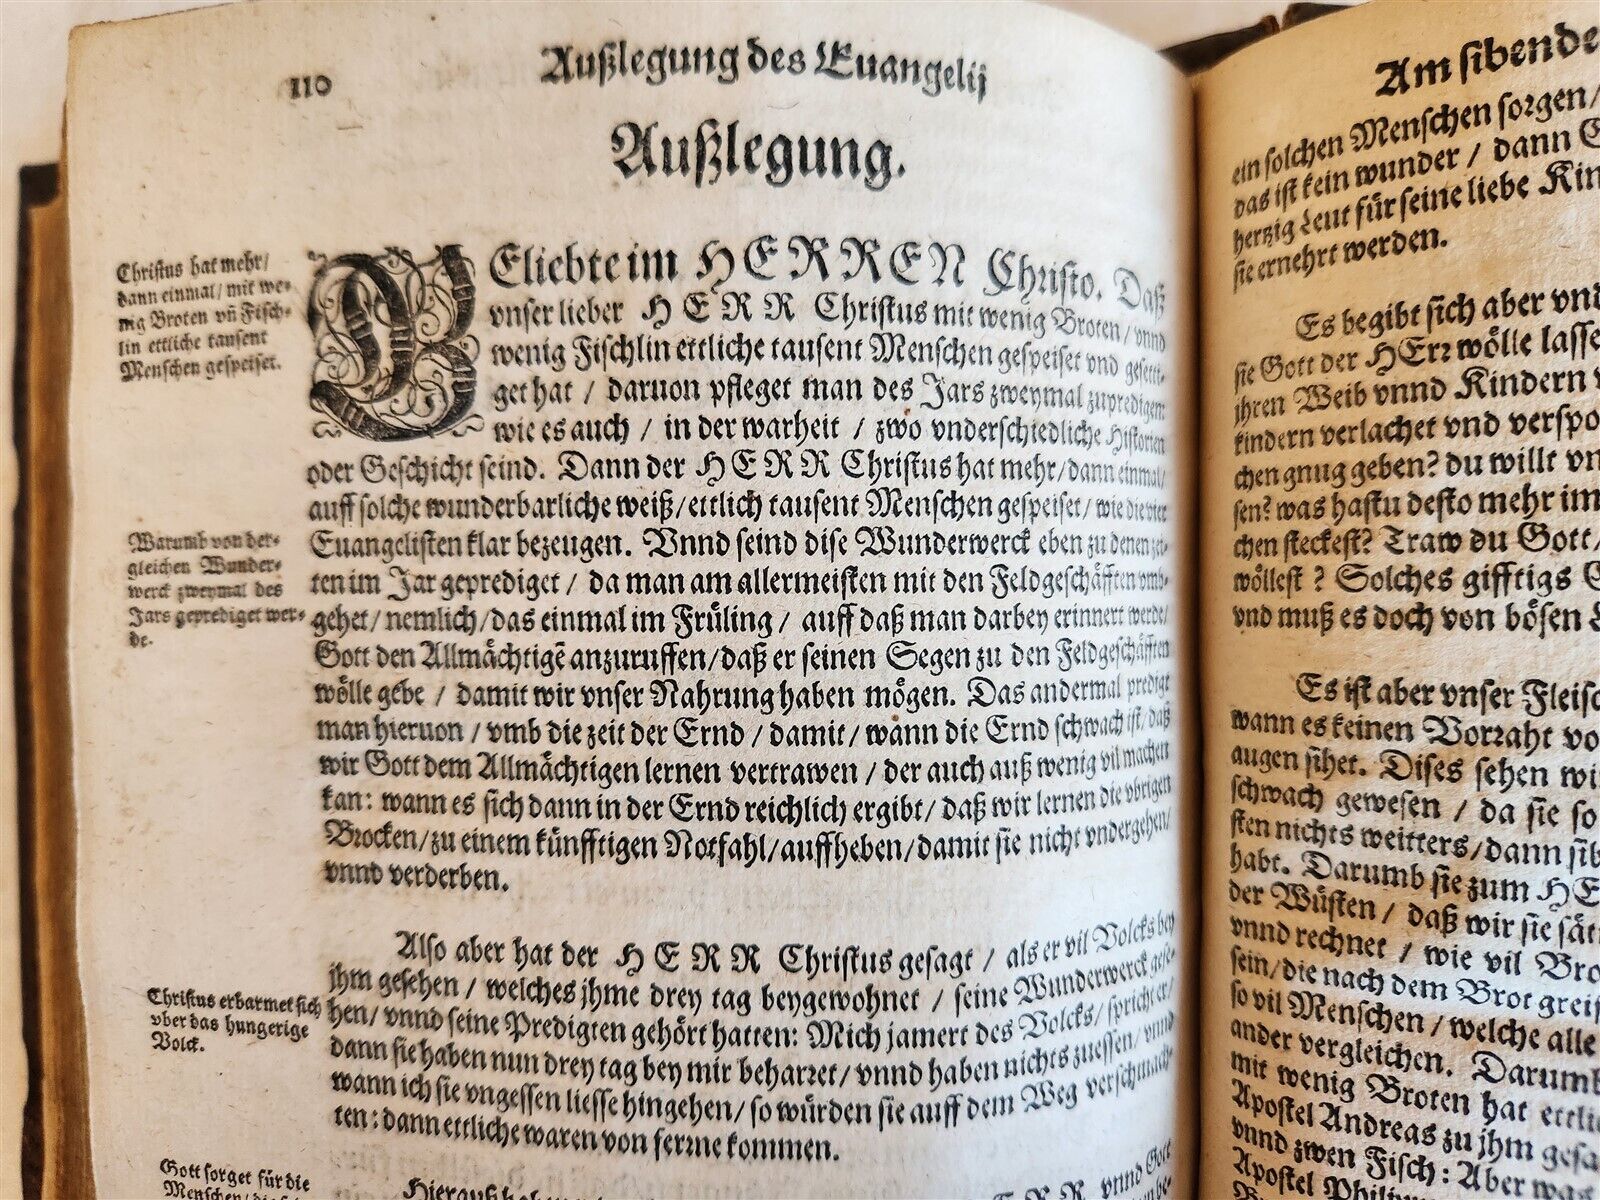 110
Außlegung des Euangelij
Außlegung.
Christus hat mehr/
dann einmal/ mit we-
nig Broten vñ Fisch-
lin ettliche tausent
Menschen gespeiset.
BEliebte im HERREN Christo. Daß
vnser lieber HERR Christus mit wenig Broten/ vnnd
wenig Fischlin ettliche tausent Menschen gespeiset vnd gesetti-
get hat / daruon pfleget man des Jars zweymal zupredigen:
wie es auch / in der warheit / zwo vnderschiedliche Historien
oder Geschicht seind. Dann der HERR Christus hat mehr/ dann einmal/
auff solche wunderbarliche weiß/ ettlich tausent Menschen gespeiset/ wie die vier
Euangelisten klar bezeugen. Vnnd seind dise Wunderwerck eben zu denen zei-
ten im Jar geprediget / da man am allermeisten mit den Feldgeschäfften vmb-
gehet/ nemlich/ das einmal im Früling / auff daß man darbey erinnert werde/
Gott den Allmächtigē anzuruffen/ daß er seinen Segen zu den Feldgeschäfften
wölle gebe / damit wir vnser Nahrung haben mögen. Das andermal predigt
man hieruon / vmb die zeit der Ernd / damit / wann die Ernd schwach ist/ daß
wir Gott dem Allmächtigen lernen vertrawen / der auch auß wenig vil machen
kan: wann es sich dann in der Ernd reichlich ergibt/ daß wir lernen die vbrigen
Brocken/ zu einem künfftigen Notfahl/ auffheben/ damit sie nicht vndergehen/
vnnd verderben.
Warumb von der-
gleichen Wunder-
werck zweymal des
Jars geprediget wer-
de.
Also aber hat der HERR Christus gesagt / als er vil Volcks bey
jhm gesehen / welches jhme drey tag beygewohnet / seine Wunderwerck gese-
hen/ vnnd seine Predigten gehört hatten: Mich jamert des Volcks/ spricht er/
dann sie haben nun drey tag bey mir beharret/ vnnd haben nichts zuessen/ vnnd
wann ich sie vngessen liesse hingehen/ so würden sie auff dem Weg verschmach-
ten: dann ettliche waren von ferrne kommen.
Christus erbarmet sich
vber das hungerige
Volck.
Gott sorget für die
Menschen/
Hierauß
HERR vnnd Gott
Am sibende
ein solchen Menschen sorgen/
das ist kein wunder / dann
hertzig Leut für seine liebe Kin
sie ernehrt werden.
Es begibt sich aber vnd
sie Gott der HErr wölle lasse
jhren Weib vnnd Kindern
kindern verlachet vnd verspo
chen gnug geben? du willt vn
sen? was hastu desto mehr im
chen steckest? Traw du Gott/
wöllest ? Solches gifftigs
vnd muß es doch von bösen
Es ist aber vnser Fleisc
wann es keinen Vorraht vo
augen sihet. Dises sehen wi
schwach gewesen / da sie so
sten nichts weitters/ dann sib
habt. Darumb sie zum HE
der Wüsten / daß wir sie sät
vnnd rechnet / wie vil Bro
sein/ die nach dem Brot greif
so vil Menschen / welche alle
ander vergleichen. Darumb
mit wenig Broten hat ettli
Apostel Andreas zu jhm gesa
vnnd zwen Fisch: Aber was
Apostel Philipp